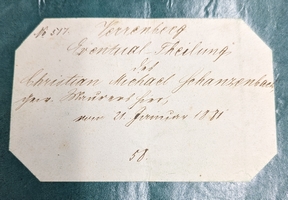 № 517. Verrenberg
Eventual Theilung
des
Christian Michael Schanzenbach
gew. Maurers hier,
vom 21 Januar 1881
58.